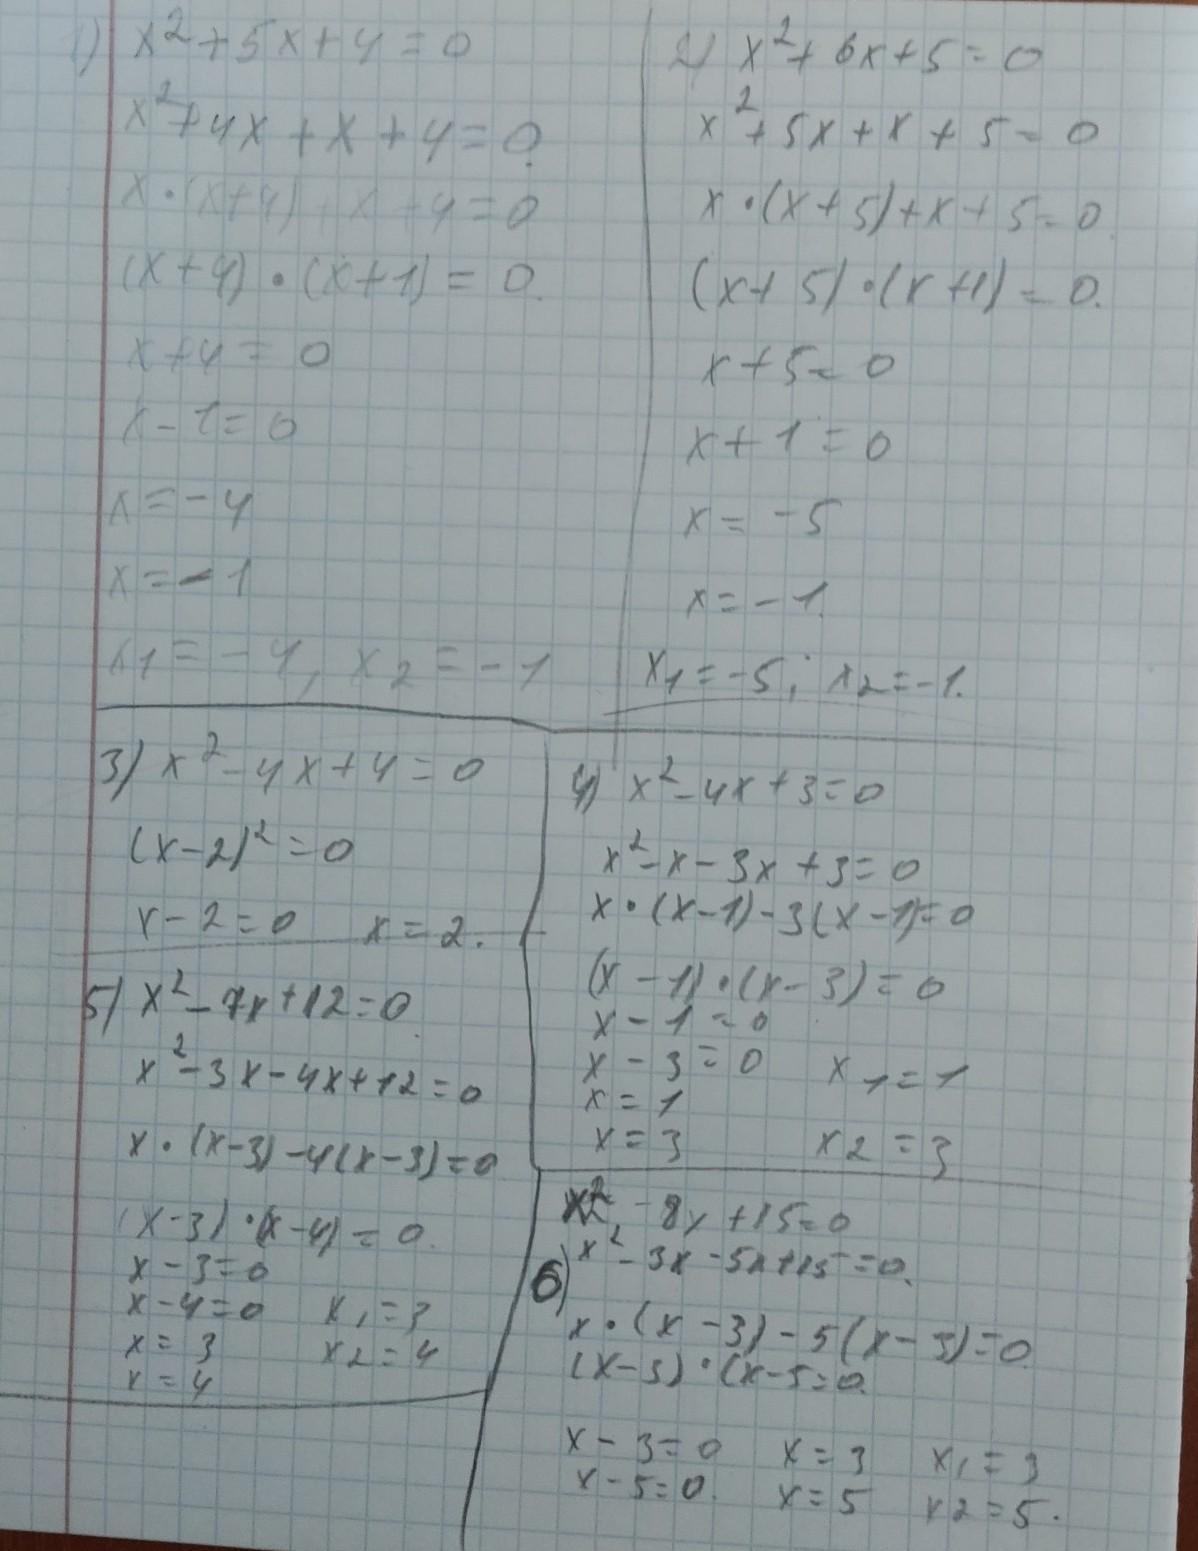 1) x²+5x+4=0
x²+4x+x+4=0
x·(x+4)+x+4=0
(x+4)·(x+1)=0.
x+4=0
x-1=0
x=-4
x=-1
x1=-4, x2=-1
2) x²+6x+5=0
x²+5x+x+5=0
x·(x+5)+x+5=0.
(x+5)·(x+1)=0.
x+5=0
x+1=0
x=-5
x=-1.
x1=-5; x2=-1.
3) x²-4x+4=0
(x-2)²=0
x-2=0 x=2.
4) x²-4x+3=0
x²-x-3x+3=0
x·(x-1)-3(x-1)=0
(x-1)·(x-3)=0
x-1=0
x-3=0 x1=1
x=1
x=3 x2=3
5) x²-7x+12=0
x²-3x-4x+12=0
x·(x-3)-4(x-3)=0
(x-3)·(x-4)=0.
x-3=0
x-4=0 x1=3
x=3 x2=4
x=4
6) x²-8x+15=0
x²-3x-5x+15=0.
x·(x-3)-5(x-3)=0
(x-3)·(x-5=0.
x-3=0 x=3 x1=3
x-5=0. x=5 x2=5.